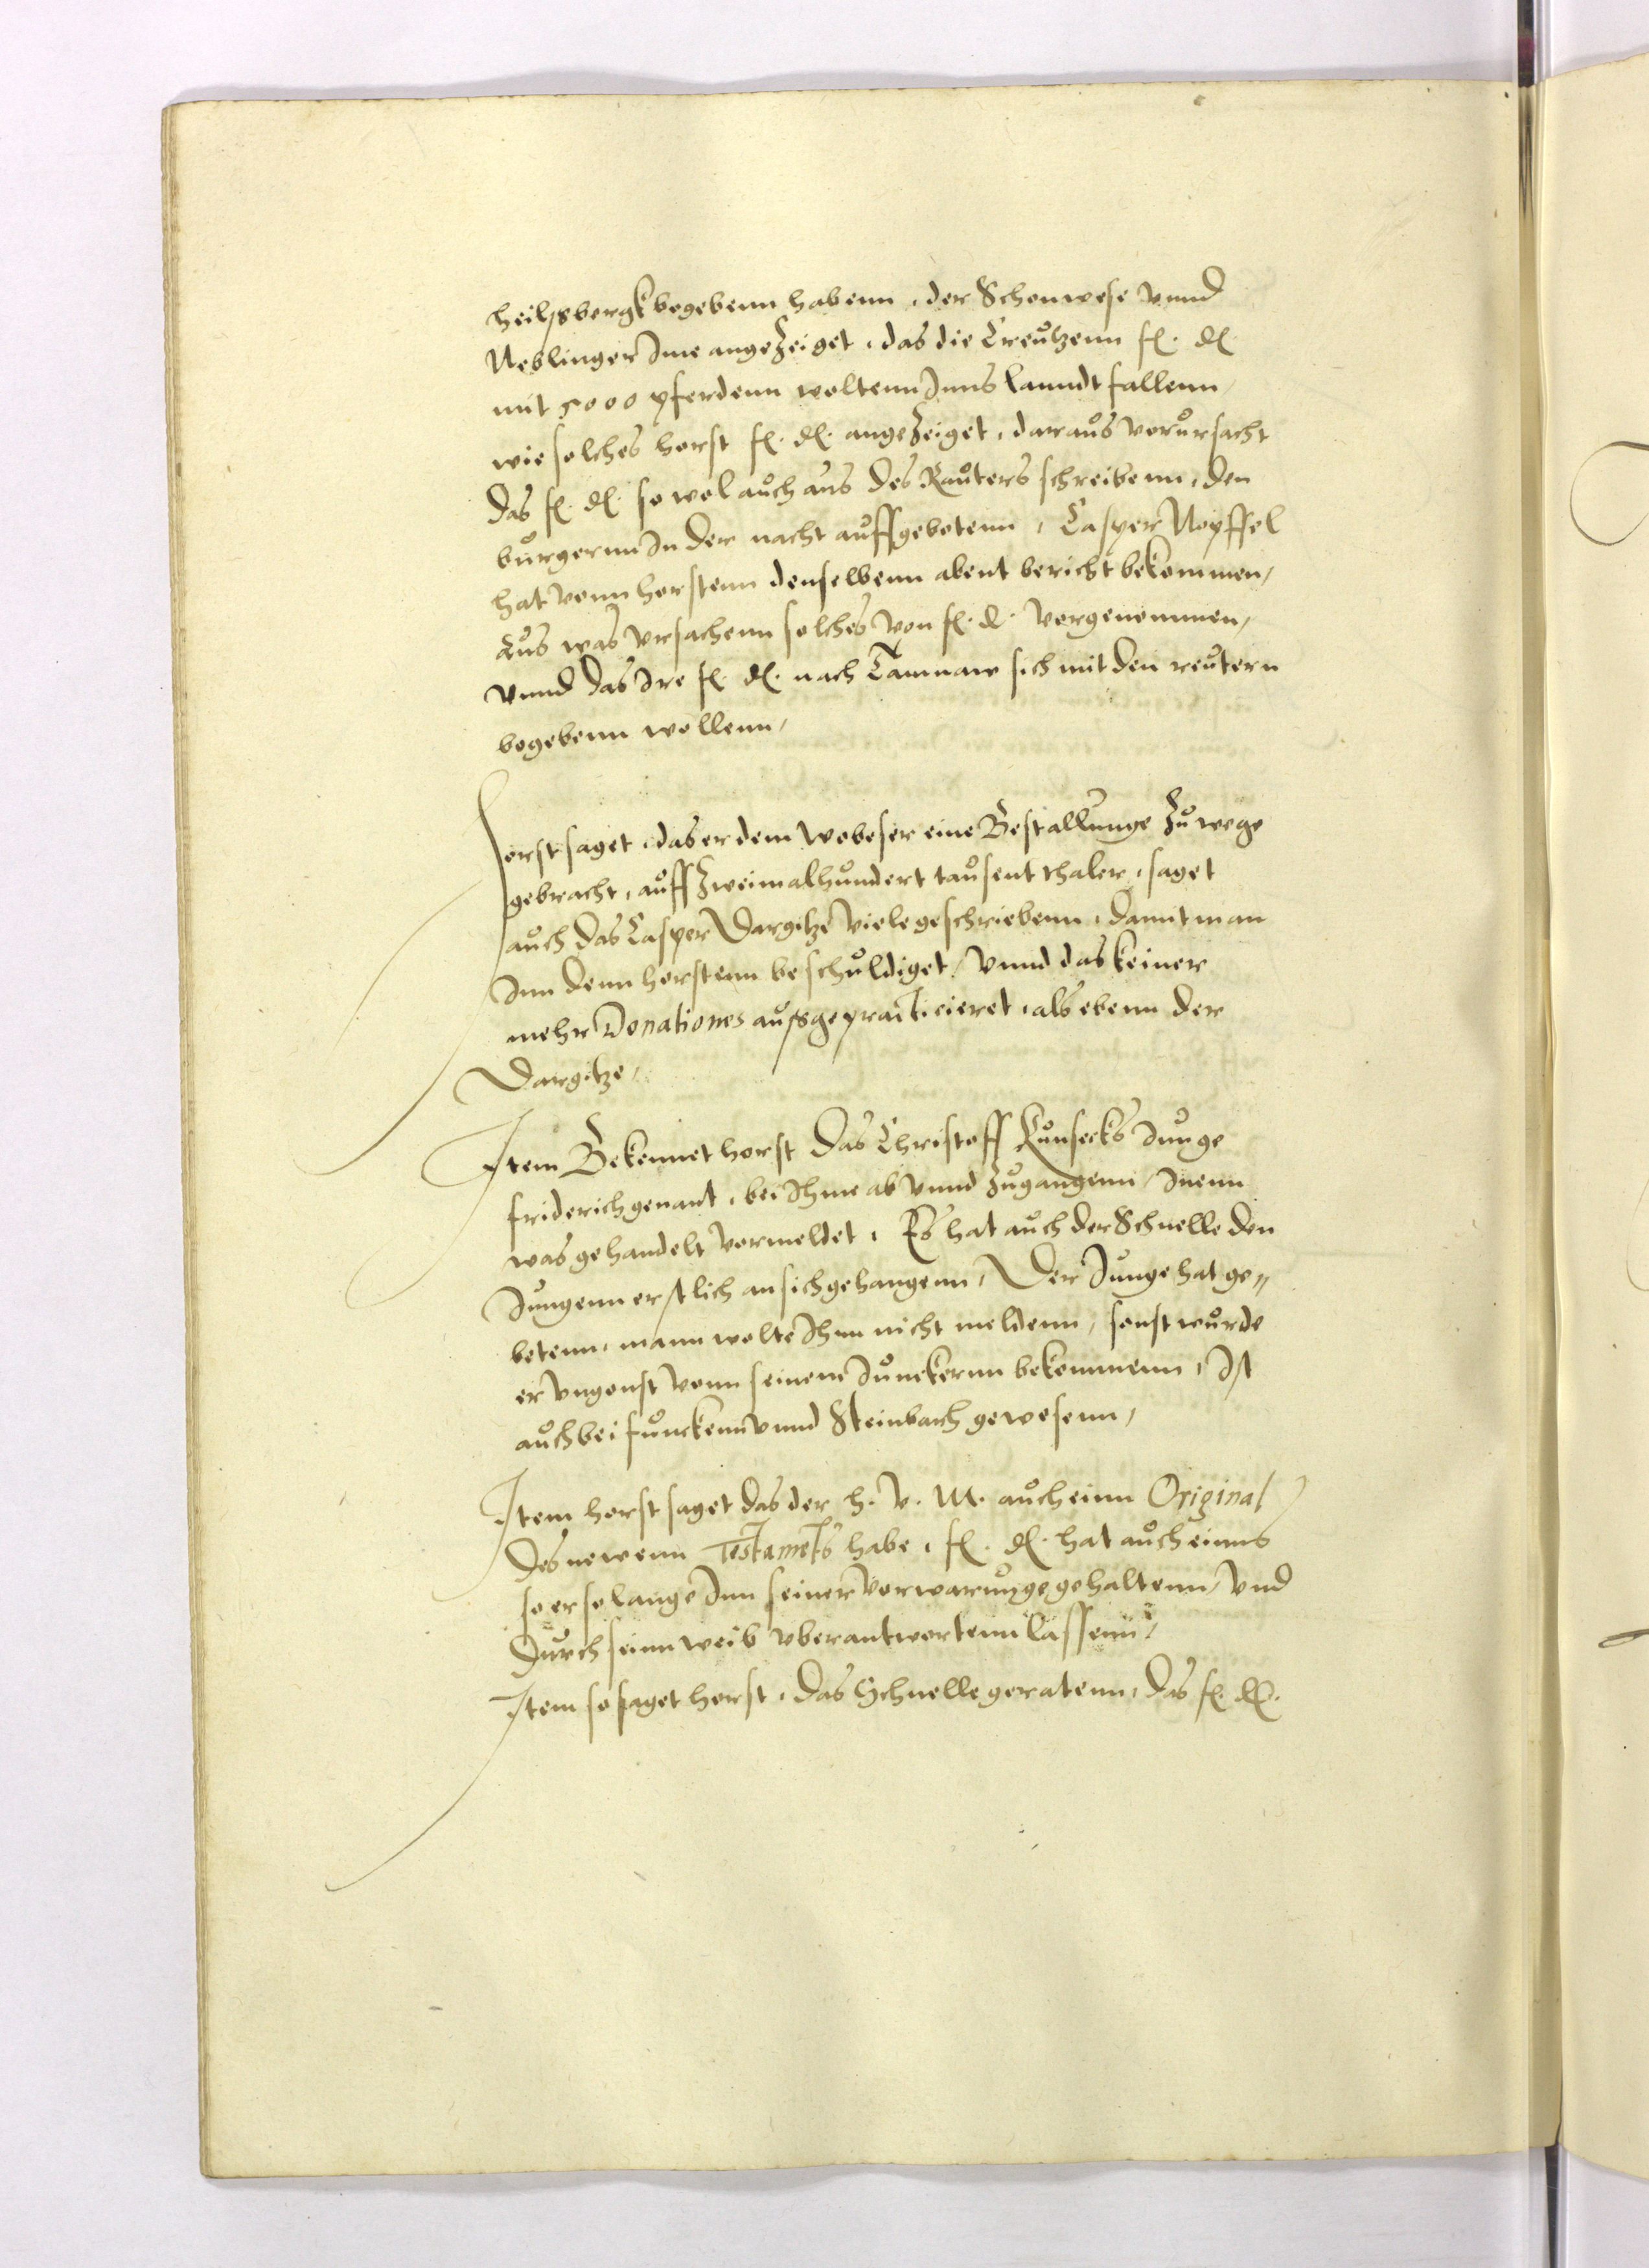 heilsbergk begebenn habenn, der Schonwese vnnd
Neblinger Ime angeZeiget, das die Creutzenn f. d.
mit 5000 pferdenn woltenn Inns lanndt fallenn,
wie solches horst f. d. angeZeiget, daraus verursacht
das f. d. so wol auch aus des Rauters schreibenn, den
burgernn In der nacht auffgebotenn, Casper Noyffel
hat vonn horstenn denselbenn abent bericht bekommen,
Aus was vrsachenn solches von f. d. vorgenommen,
vnnd das Ire f. d. nach Tamnaw sich mit den reutern
begebenn wollenn,
Horst saget, das er dem Wobeser eine Bestallunge Zu wege
gebracht, auff Zweimalhundert tausent thaler, saget
auch das Casper Dargitze viele geschriebenn, damit man
Inn denn horstenn beschuldiget, vnnd das keiner
mehr Donationes aussgepracticieret, als ebenn der
Dargitze,
Item Bekennet horst das Christoff Kunsecks Junge
friderich genant, bei Ihme ab vnnd Zugangenn, Inenn
was gehandelt vermeldet, Es hat auch der Schnelle den
Jungenn erstlich an sich gehangenn, Der Junge hat ge„
betenn, mann wolte Ihnn nicht meldenn, sonst wurde
er vngonst vonn seinem Junckernn bekommenn, Ist
auch bei funckenn vnnd Steinbach gewesenn,
Item horst saget das der h. v. M. auch einn Original
des newenn Testamets habe, f. d. hat auch einns
so er so lange Inn seiner verwarunge gehaltenn, vnd
durch seinn weib vberantwortenn lassenn,
Item so saget horst, das Schnelle geratenn, das f. d.